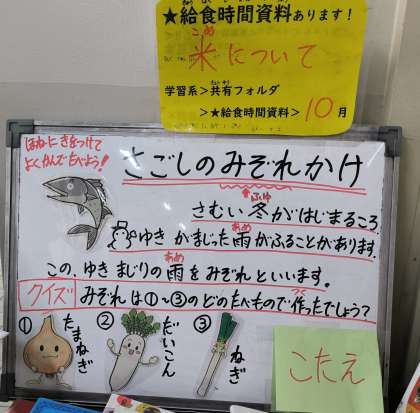 ★給食時間資料あります!
こめ
米について
学習系>共有フォルダ
>★給食時間資料> 10月
ほねにきをつけて
よくかんでたべよう!
さごしのみぞれかけ
さむい冬がはじまるころ、
ふゆ
ゆきがまじった雨がふることがあります。
あめ
この、ゆきまじりの雨をみぞれといいます。
あめ
クイズ みぞれは①~③のどのたべもので作ったでしょう?
つく
① たまねぎ
② だいこん
③ ねぎ
こたえ